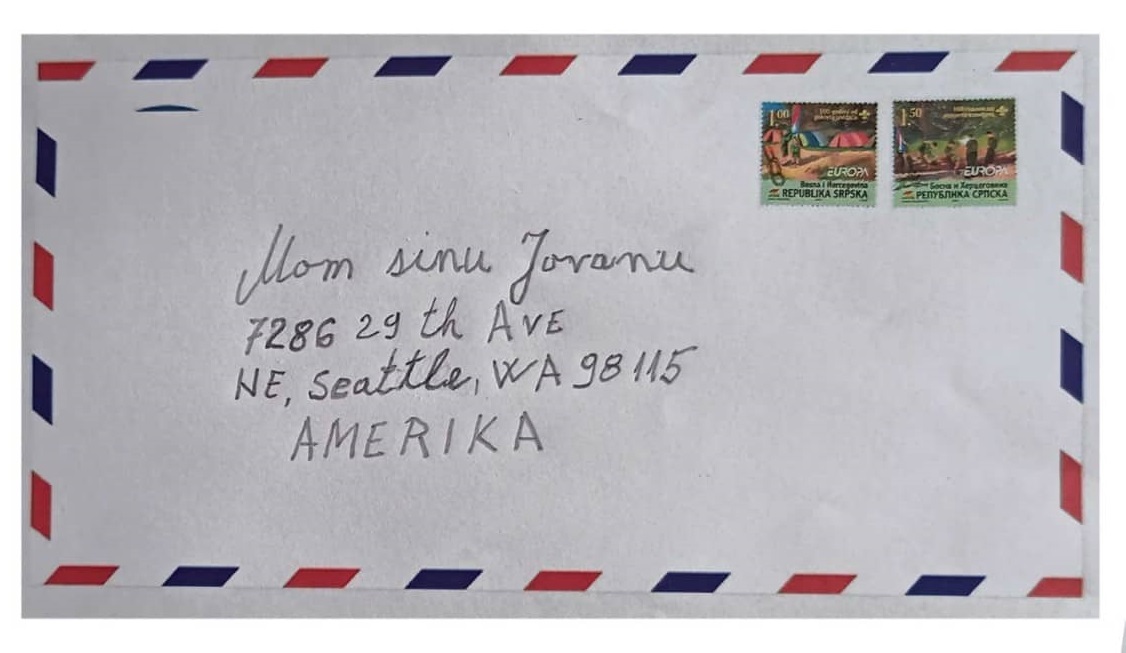 1.00
EUROPA
Bosna i Hercegovina
REPUBLIKA SRPSKA
1.50
EUROPA
Босна и Херцеговина
РЕПУБЛИКА СРПСКА
Mom sinu Jovanu
7286 29 th AVE
NE, Seattle, WA 98115
AMERIKA